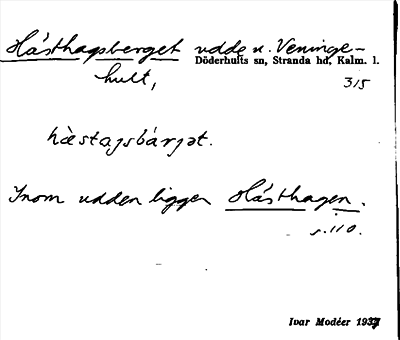 Hästhagsberget udde u. Veninge-
Döderhults sn, Stranda hd, Kalm. l.
hult,
315
hæstagsbárjət.
Inom udden ligger Hästhagen.
s. 110.
Ivar Modéer 1937